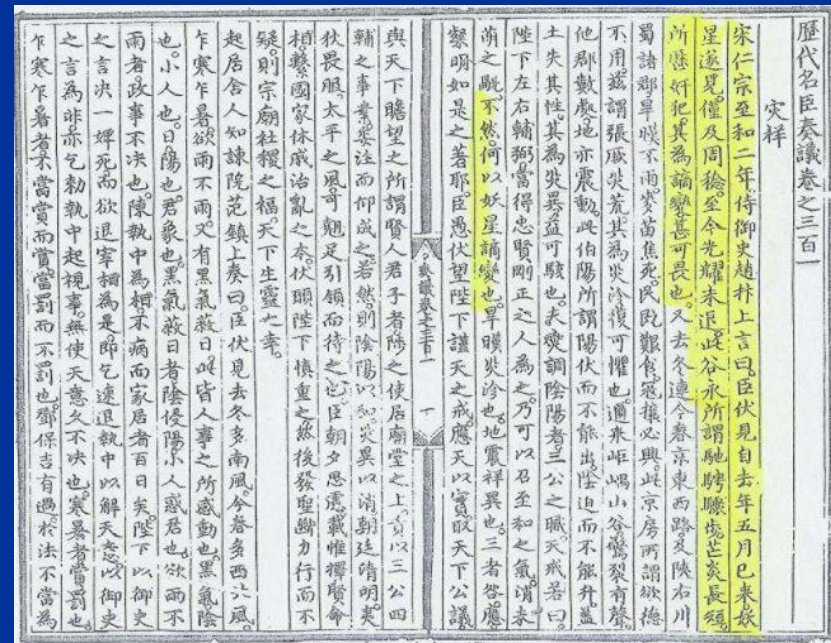 歷代名臣奏議卷之三百一
灾祥
宋仁宗至和二年侍御史趙抃上言曰臣伏見自去年五月已來妖
星遂見僅及周稔至今光耀未退此谷永所謂馳騁驟步芒炎長短
所歷奸犯其為謫變甚可畏也又去冬連今春京東西路及陜右川
蜀諸郡旱暵不雨麥苗焦死民既艱食寇攘必興此京房所謂欲德
不用茲謂張厥災荒其為災沴復可懼也邇來岠嵎山谷驚裂有聲
他郡數處地亦震動此伯陽所謂陽伏而不能出陰迫而不能升蓋
土失其性其為災異益可駭也夫燮調陰陽者三公之職天戒若曰
陛下左右輔弼當得忠賢剛正之人為之乃可以召至和之氣消未
萌之 不然何以妖星謫變也旱暵災沴也地震祥異也三者咎應
察明如是之著耶臣愚伏望陛下謹天之戒應天以實取天下公議
奏議卷之三百一
一
與天下瞻望之所謂賢人君子者陟之使居廟堂之上責以三公四
輔之事業委注而仰成之若然則陰陽以和災異以消朝廷清明夷
狄畏服太平之風可翹足引領而待之也臣朝夕思慮載惟擇賢命
相繫國家休戚治亂之本伏願陛下慎重之然後發聖斷力行而不
疑則宗廟社稷之福天下生靈之幸
起居舍人知諫院范鎮上奏曰臣伏見去冬多南風今春多西北風
乍寒乍暑欲雨不雨又有黑氣蔽日此皆人事之所感動也黑氣陰
也小人也日陽也君象也黑氣蔽日者陰侵陽小人惑君也欲雨不
雨者政事不决也陳執中為相不病而家居者百日矣陛下以御史
之言决一婢死而欲退宰相為是即乞速退執中以解天意以御史
之言為非亦乞勑執中起視事無使天意久不决也寒暑者賞罰也
乍寒乍暑者不當賞而賞當罰而不罰也鄧保吉有過於法不當為